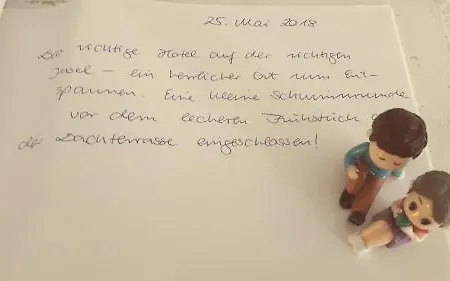 25. Mai 2018
Das richtige Hotel auf der richtigen
Insel – ein herrlicher Ort zum Ent-
spannen. Eine kleine Schwimmrunde
vor dem leckeren Frühstück
der Dachterrasse eingeschlossen!